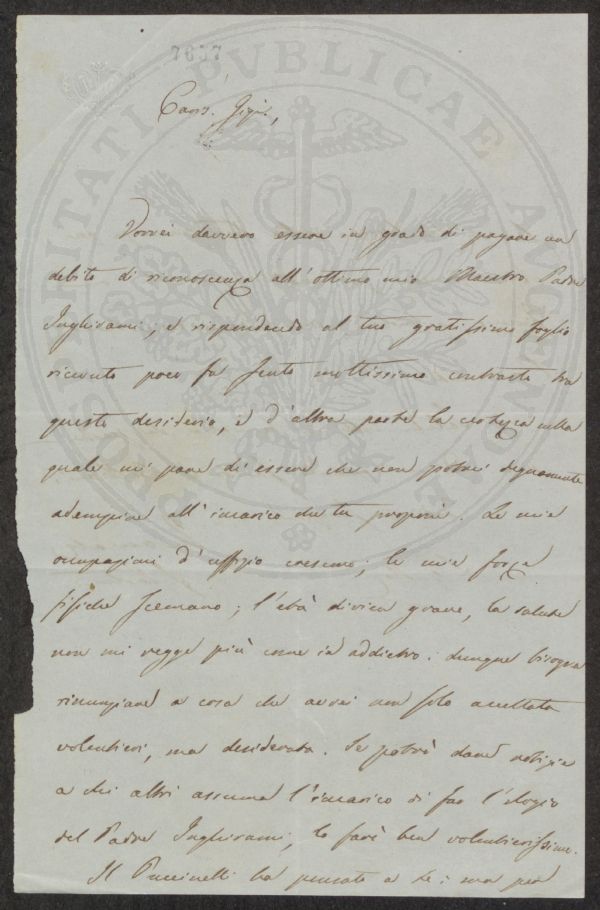 7637
PROSPERITATI PVBLICAE AVGENDAE
Cariss. Gigi,
Vorrei davvero essere in grado di pagare un
debito di riconoscenza all'ottimo mio Maestro Padre
Inghirami; e rispondendo al tuo gratissimo foglio
ricevuto poco fa sento moltissimo contrasto tra
questo desiderio, e d'altra parte la certezza nella
quale mi pare di essere che non potrei degnamente
adempiere all'incarico che tu proponi. Le mie
occupazioni d'uffizio crescono; le mie forze
fisiche scemano; l'età divien grave, la salute
non mi regge più come in addietro: dunque bisogna
rinunziare a cosa che avrei non solo accettata
volentieri, ma desiderata. Se potrò dare notizie
a chi altri assuma l'incarico di far l'elogio
del Padre Inghirami, lo farò ben volentierissimo.
Il Puccinelli ha pensato a te: ma poi